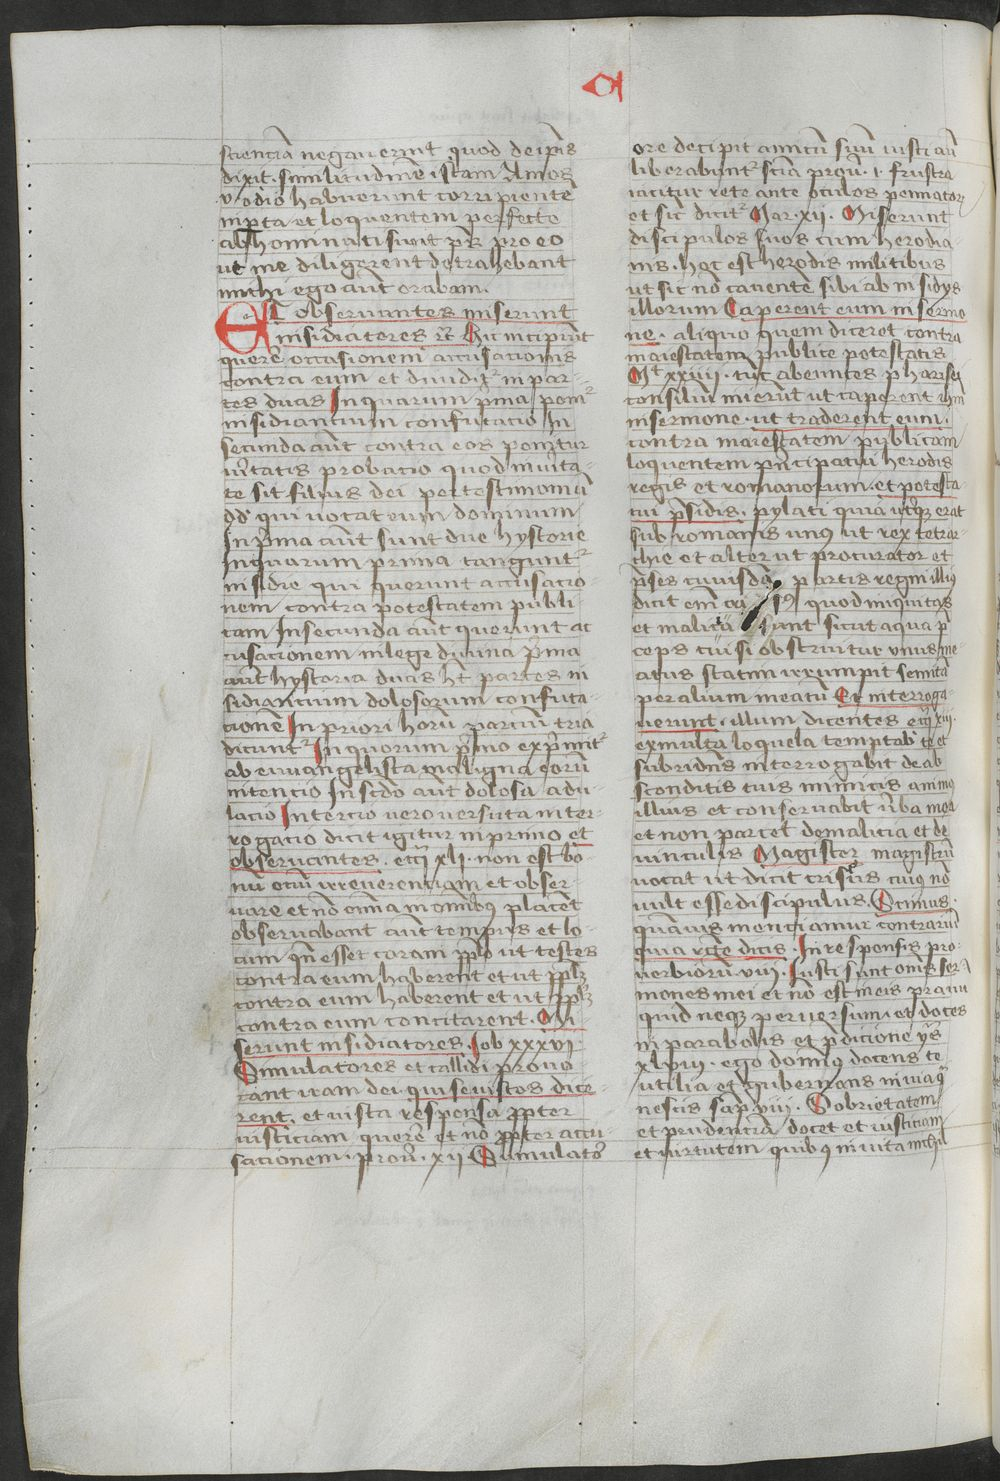 a
scientiā negauerint quod de ipīs
dixit similitudinē istam Amos
v odio habuerunt corripientē
in pta et loquentem perfecte
abhominati sunt ps pro eo
ut me diligerent detrahebant
michi ego aūt orabam.
Et obseruantes miserunt
insidiatores rc̄ Hic incipiūt
querē occasionem accusationis
contra eum et diuidit᷑ in par-
tes duas In quarum pͥma ponit᷑
insidiantium confutacio In
secunda aūt contra eos ponitur
uītatis probacio quod in uīta-
te sit filius dei per testimoniū
dd̄ qui uocat eum dominum
In pͥma aūt sunt due hystorie
In quarum prima tangunt᷑
insidie qui querunt accusatio-
nem contra potestatem publi-
cam In secunda aūt querunt ac
cusationem in lege diuina pͥma
aūt hystoria duas hīt partes in
sidiantium dolosorum confuta-
cionē In priori horū parciū tria
dicunt᷑ In quorum pͥmo expͥmit᷑
ab euuangelista maligna eorū
intencio In scdo aūt dolosa adu
lacio In tercio uero uersuta inter-
rogacio dicit igitur in primo et
obseruantes. ecci xli. non est bo-
nū oem̄ irreuerentiam et obser-
uare et nō omīa in omībus placēt
obseruabant aūt tempus et lo-
cum qn̄ esset coram pplo ut testes
contra eum haberent et ut pplm̄
contra eum haberent et ut pplm̄
contra eum concitarent. Mi
serunt insidiatores. Iob xxxvi.
Simulatores et callidi prouo
cant iram dei. qui se iustos dice-
rent. et iusta responsa ꝓpter
iusticiam querē et nō ꝓpter accu
sationem. prou. xii Simulator
ore decipit amicū suū iusti aūt
liberabunt᷑ sciā prou. i. frustra
iacitur rete ante oculos pennatorꝝ
et sic dicit᷑ Mar. xii. Miserunt
discipulos suos cum herodia-
nis. hoc est herodis militibus
ut sic nō cauentē sibi ab insidijs
illorum Caperent eum in sermo
ne. aliquo quem diceret contra
maiestatem publice potestatis
Mt xxiiii. tūc abeuntes pharisei
consiliū inierūt ut caperent ihm̄
in sermone. ut traderent eum.
contra maiestatem publicam
loquentem pͥncipatui herodis
regis et romanorum. et potesta-
tui p̄sidis. pylati quia utqꝫ erat
sub romanis unus ut rex tetrar-
chie et alter ut procurator et
p̄ses cuiusdā partis regni illius
dicit em̄ quod iniquitas
et malicia sunt sicut aqua p̄
ceps cui si obstruitur unus me-
atus statim irrumpit semitā
per alium meatū Et interroga-
uerunt. illum dicentes ecci xiii.
ex multa loquela temptab᷑ te et
subridens interrogabit de ab
sconditis tuis inimicis animus
illius et conseruabit uba mea
et non parcet de malicia et de
uinculis Magister magistrū
uocat ut dicit crisus cuius nō
uult esse discipulus. Scimus.
quāuis mencianur contrariū
quia recte dicis. In responsis pro-
uerbiorū viii. Iusti sunt oms ser-
mones mei et nō est in eis praui
quid neqꝫ peruersum. et doces
in parabolis et p̄dicione ys
xlviii. ego dominus docens te
utilia et gubernans in uia qͣ
nescis sap viii. Sobrietatem
et prudentiā docet et iusticiam
et uirtutem quibus in uita nichil